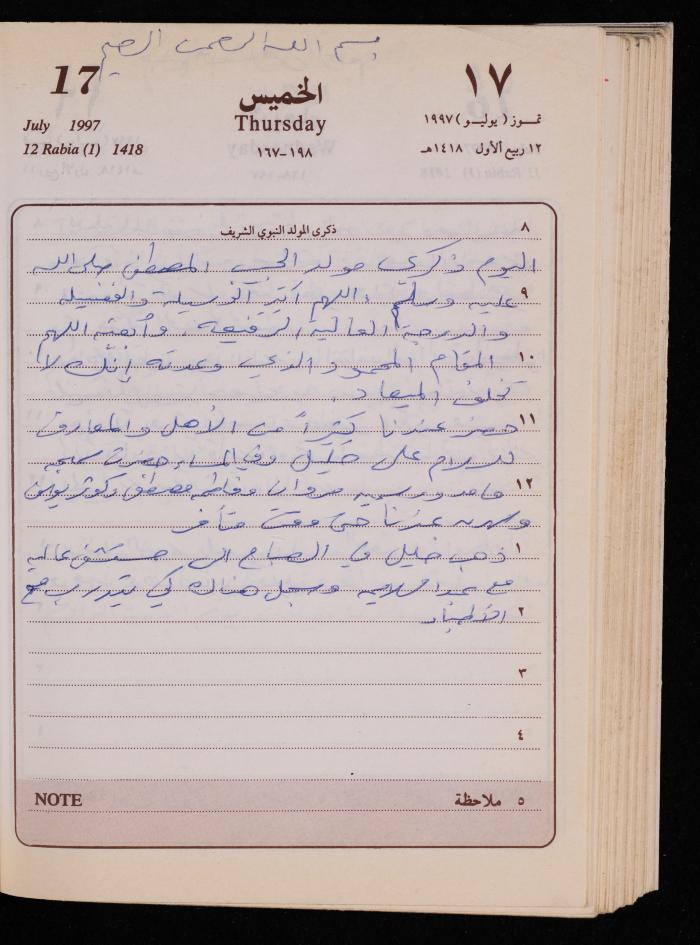 بسم الله الرحمن الرحيم
17 الخميس ١٧
July 1997 Thursday تموز (يوليو) ١٩٩٧
12 Rabia (1) 1418 ١٩٨-١٦٧ ١٢ ربيع الأول ١٤١٨هـ
ذكرى المولد النبوي الشريف ٨
اليوم ذكرى مولد الحبيب المصطفى صلى الله
٩ عليه وسلم، اللهم آتيه الوسيلة والفضيلة
والدرجة العالية الرفيعة، وأبعثه اللهم
١٠ المقام المحمود الذي وعدته إنك لا
تخلف الميعاد.
١١ حضر عندنا كثيراً من الأهل والمعارف
للسلام على خليل وفي المساء حضرت
١٢ مروان وفاطمه مصطفى
وسهروا عندنا حتى وقت متأخر
١ ذهب خليل في الصباح الى مستشفى عاليه
مع وسجل هناك لكي يتدرب مع
٢ الأطباء
٣
٤
NOTE ٥ ملاحظة